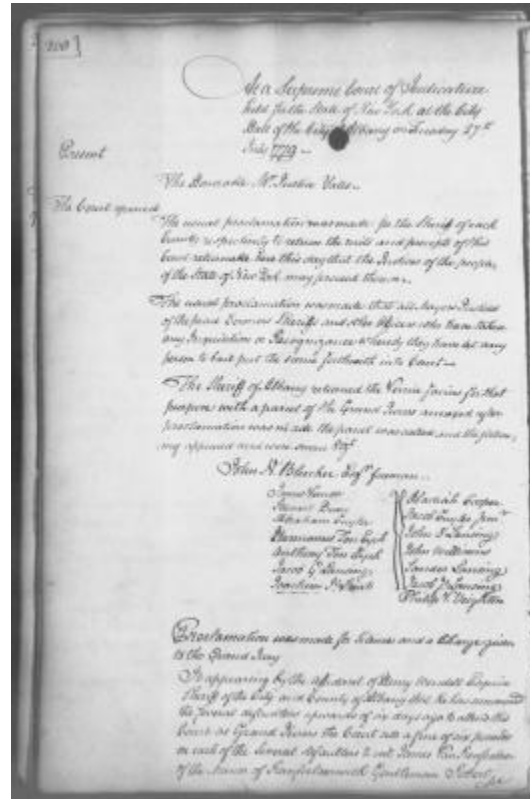 200]
At a Supreme Court of Judicature
held for the State of New York at the City
Hall of the City of Albany on Tuesday 27th
July 1779 —
Present
The Honorable Mr Justice Yates —
The Court opened
The usual proclamation was made for the Sheriff of each
County respectively to return the writs and precepts of this
Court returnable here this day that the Justices of the people
of the State of New York may proceed thereon —
The usual proclamation was made that all Mayors Justices
of the peace Coroners Sheriffs and other Officers who have taken
any Inquisition or Recognizance whereby they have let any
person to bail put the same forthwith into Court —
The Sheriff of Albany returned the Venire facias for that
purpose with a panel of the Grand Jurors annexed after
proclamation was made the panel was called and the follow-
ing appeared and were sworn
John N. Bleecker Esqr foreman
Abraham Cuyler
Harmanus Ten Eyck
Anthony Ten Eyck
Jacob G. Lansing
Cooper
Jacob Cuyler Junr
John J Lansing
John Williams
Sander Lansing
Jacob J Lansing
Philip V. Veighten
Proclamation was made for Silence and a Charge given
to the Grand Jury
It appearing by the affidavit of Henry Wendell Esquire
Sheriff of the City and County of Albany that he has summoned
the several defaulters upwards of six days ago to attend this
Court as Grand Jurors the Court sets a fine of six pounds
on each of the several defaulters to wit James Van Rensselaer
of the Manor of Rensselaerwick Gentleman Robert